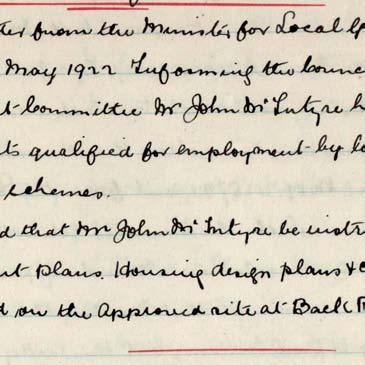 ter from the Minister for Local G
May 1922 Informing the Counc
t Committee Mr John McIntyre h
ts qualified for employment by lo
schemes.
d that Mr John McIntyre be instr
nt plans. Housing design plans & c
d on the Approved site at Back R